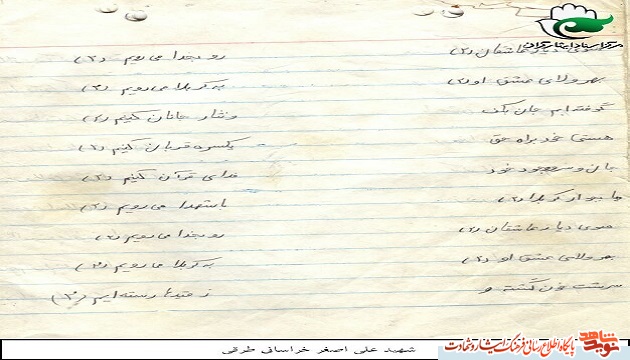 سوی دیار عاشقان (۲) رو بخدا می رویم (۲)
بهر ولای عشق او (۲) به کربلا می رویم (۲)
گرفته ایم جان بکف و نثار جانان کنیم (۲)
هستی خود براه حق یکسره قربان کنیم (۲)
جان و سر و وجود خود فدای قرآن کنیم (۲)
ما جوار کربلا (۲) با شهدا می رویم (۲)
سوی دیار عاشقان (۲) رو بخدا می رویم (۲)
بهر ولای عشق او (۲) به کربلا می رویم (۲)
سرشت خون گشته و ز قید رسته ایم (۲)
شهید علی اصغر خراسانی طرقی
نوید شاهد پایگاه اطلاع رسانی فرهنگ ایثار و شهادت